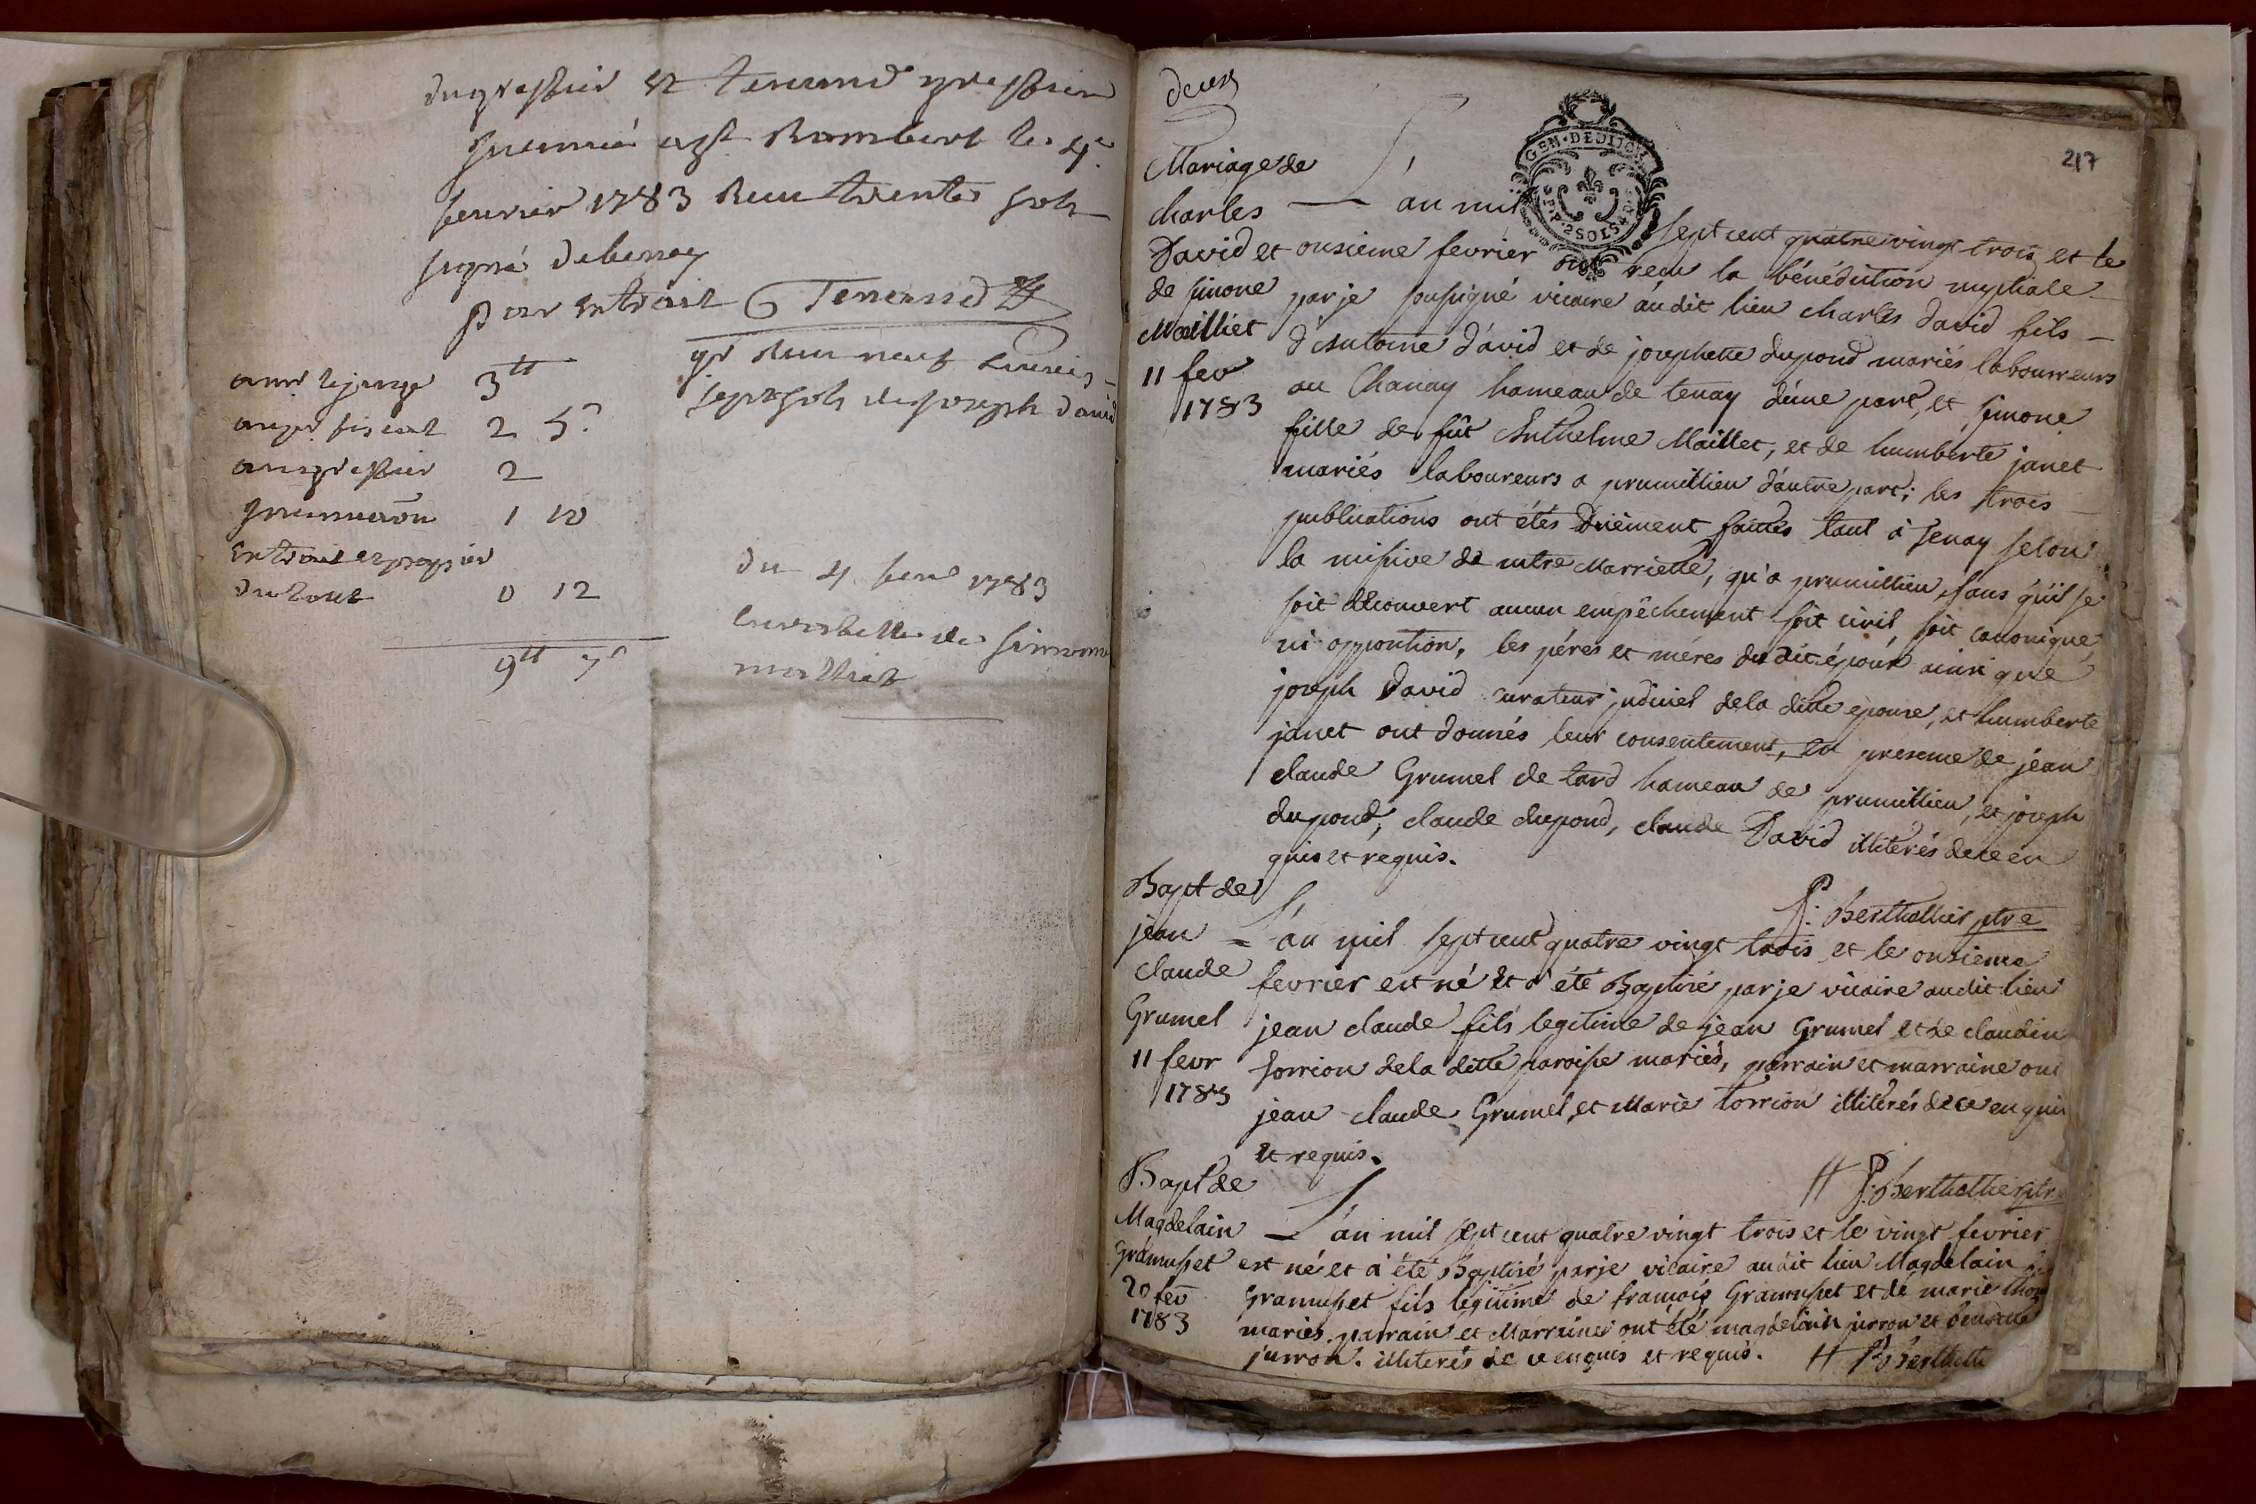 dugreffier et Tenand greffier
Insinué a St Rambert le 4e
fevrier 1783 Recu trente sols
signé Debeney
par extrait
pr Recu neuf Livres
sept sols de joseph david
3tt
fiscal 2 5s
augreffier 2
Insinuaōn 1 10
Extrait et papier
du tout 0 12
9tt 7s
du 4 fevr 1783
curatelle de Simone
malliet
deux
217
GEN · DE DIJON
2 SOLS
Mariage de
charles
David et
de simone
Mailliet
11 fev
1783
L'an mil sept cent quatre vingt trois et le
onsieme fevrier ont recu la bénédiction nuptiale
par je soussigné vicaire audit lieu charles David fils
d'Antoine david et de josephette dupond mariés laboureurs
au Chanay hameau de tenay d'une part, et simone
fille de fût Anthelme Maillet, et de humberte janet
mariés laboureurs a prumillieu d'autre part; les trois
publications ont étés duëment faittes tant à tenay selon
la missive de mtre Marriette, qu'a prumillieu, sans qu'il se
soit découvert aucun empêchement soit civil, soit canonique,
ni opposition, les péres et méres du dit époux ainsi que
joseph David curateur judiciel de la ditte epouse, et humberte
janet ont donnés leur consentement, en presence de jean
claude Grumel de tard hameau de prumillieu, et joseph
dupond, claude dupond, claude David illiterés de ce en
quis et requis.
P. Berthollier ptre
Bapt de
jean
claude
Grumel
11 fevr
1783
L'an mil sept cent quatre vingt trois et le onsieme
fevrier est né et a été Baptisé par je vicaire audit lieu
jean claude fils legitime de jean Grumel et de claudine
torrion de la ditte paroisse mariés, parrain et marraine ont
jean claude Grumel et Marie torrion illiterés de ce enquis
et requis.
P. Berthollier ptre
Bapt de
Magdelain
Gramusset
20 fev
1783
L'an mil sept cent quatre vingt trois et le vingt fevrier
est né et a été Baptisé par je vicaire audit lieu Magdelain
Gramusset fils légitime de francois Gramusset et de marie
mariés, parrain et Marraine ont été magdelain jurron et
jurron. illiterés de ce enquis et requis.